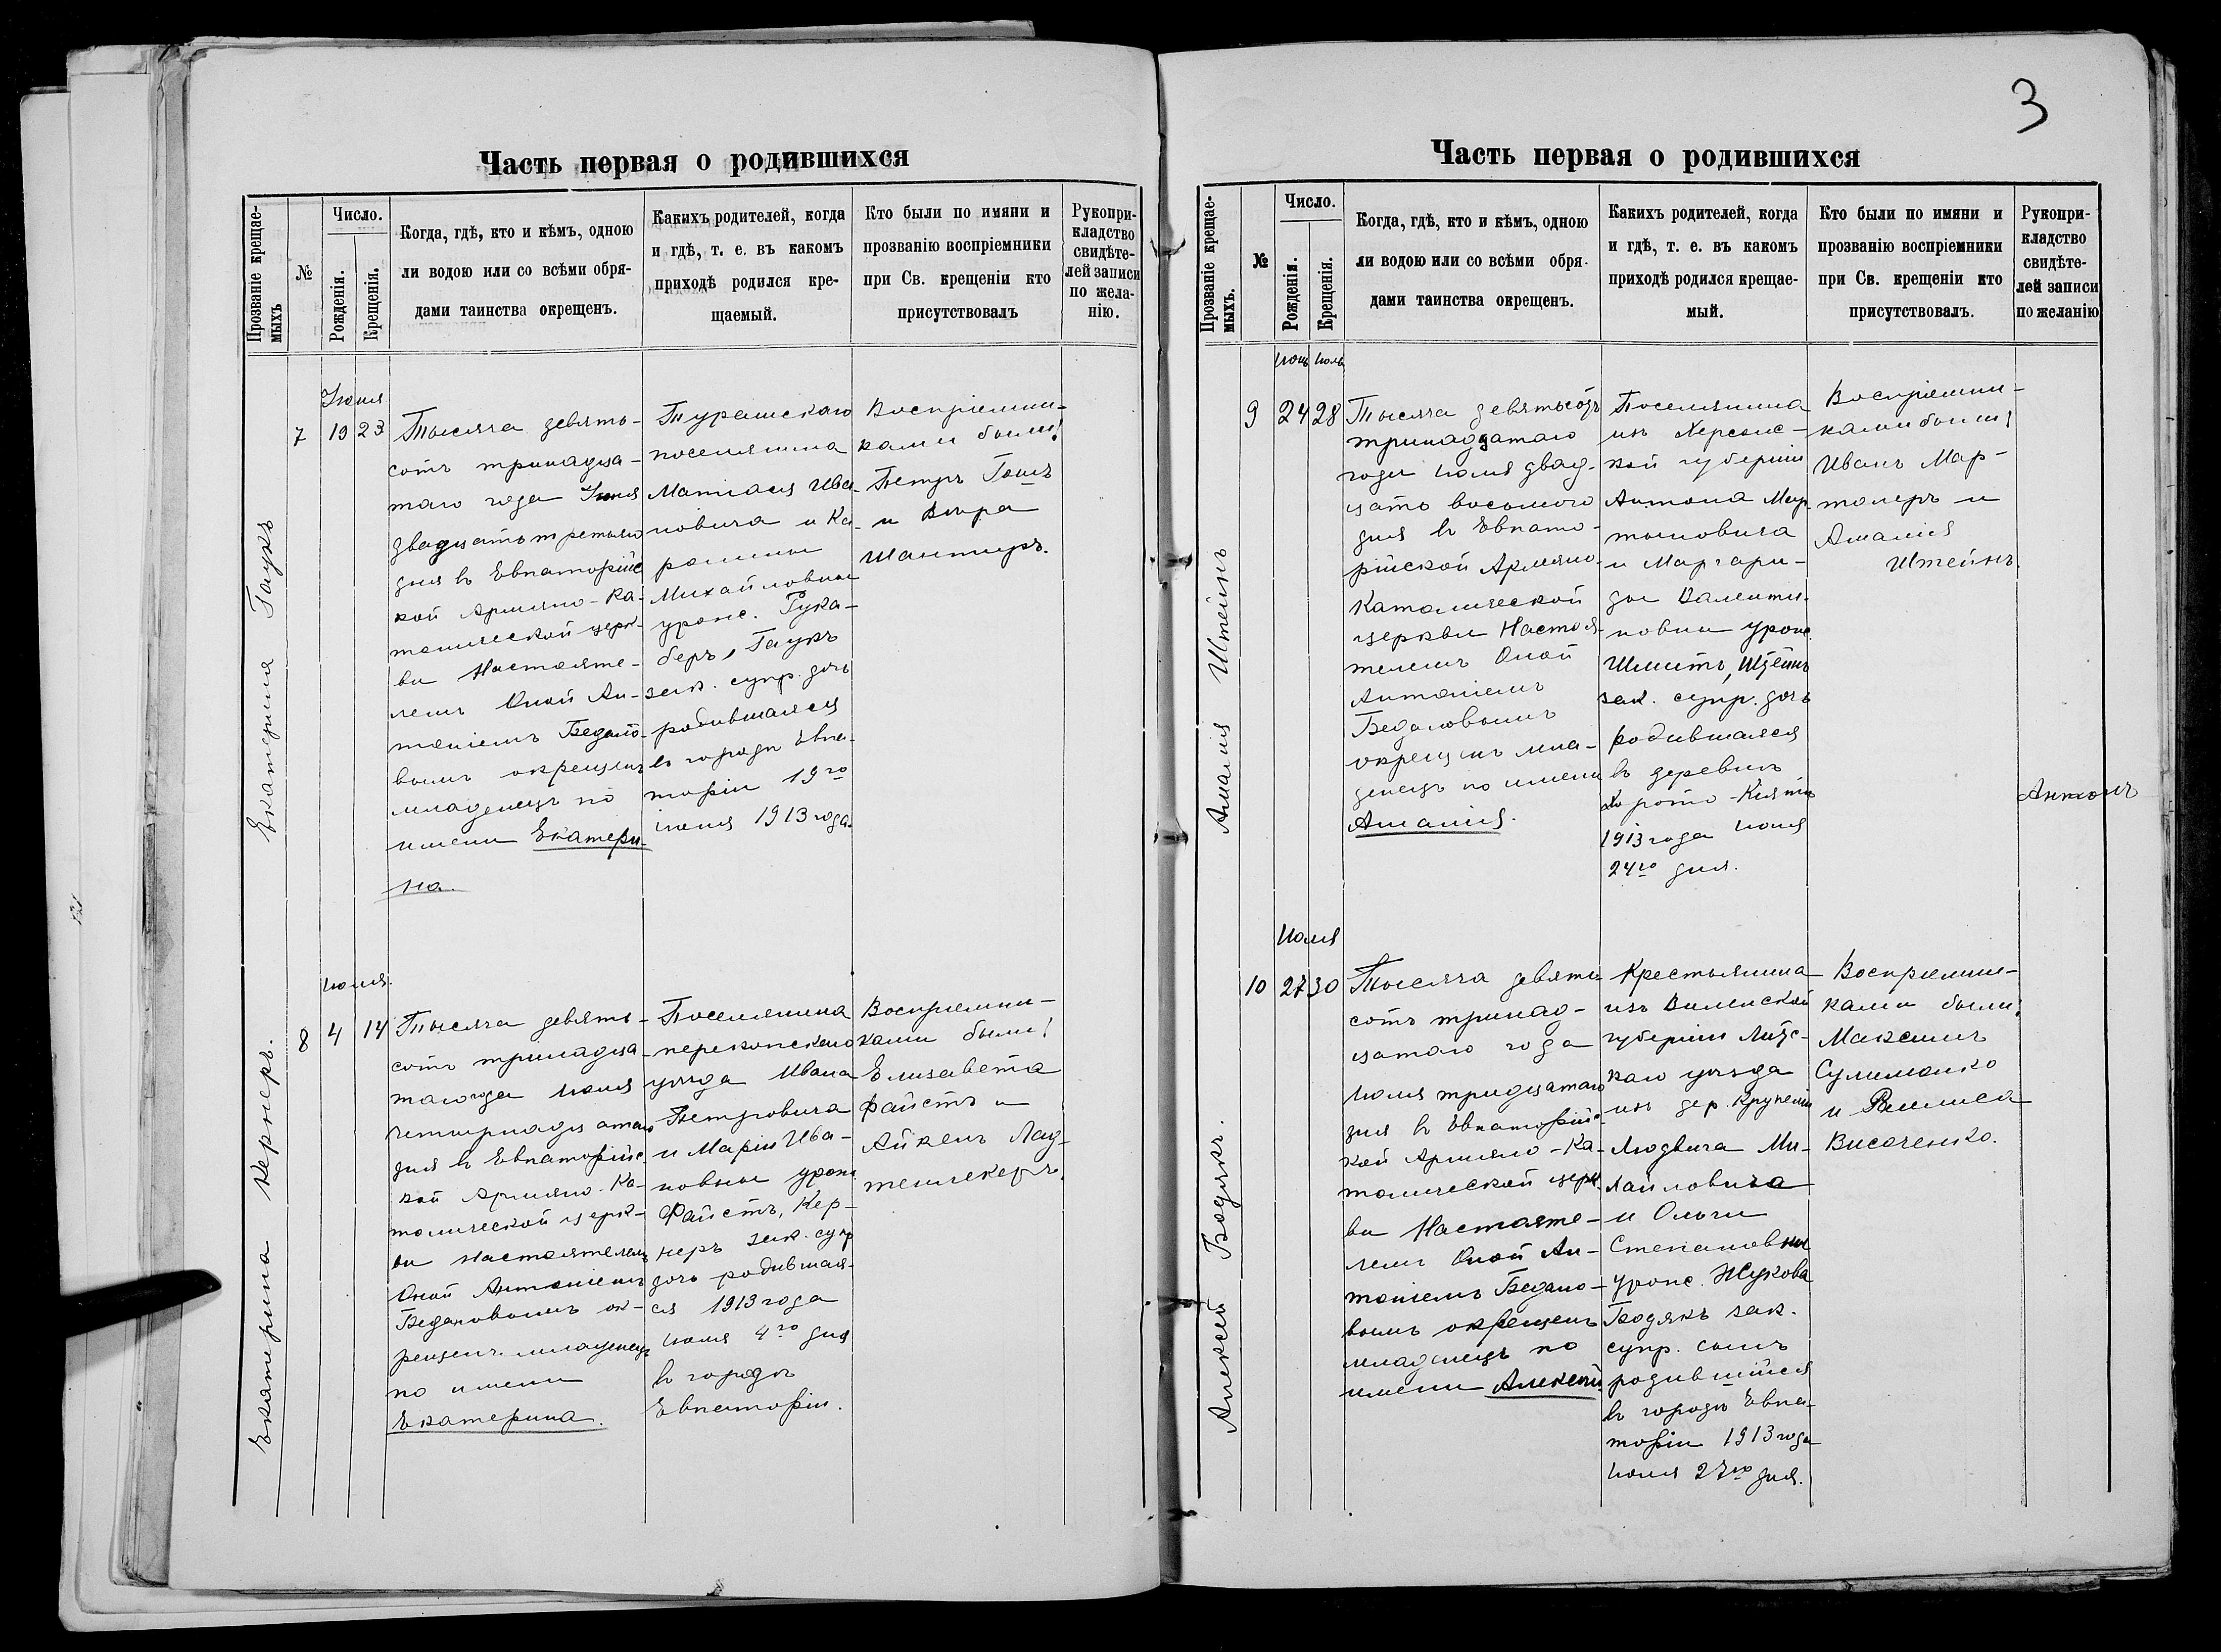 3
Часть первая о родившихся
Прозваніе крещае-
мыхъ
№
Число.
Рожденія.
Крещенія.
Когда, гдѣ, кто и кѣмъ, одною
ли водою или со всѣми обря-
дами таинства окрещенъ.
Какихъ родителей, когда
и гдѣ, т. е. въ какомъ
приходѣ родился кре-
щаемый.
Кто были по имяни и
прозванію воспріемники
при Св. крещеніи кто
присутствовалъ
Рукопри-
кладство
свидѣте-
лей записи
по жела-
нію.
Екатерина Гаукъ
7
Іюня
19 23
Тысяча девять-
сотъ тринадца-
таго года Іюня
двадцать третьяго
дня въ Евпаторійс
кой Армяно-Ка-
толической церк-
ви Настояте-
лемъ Оной Ан-
тоніемъ Бедано-
вымъ окрещенъ
младенецъ по
имени Екатери-
на.
поселянина
Матіаса Ива-
новича и Ка-
ролины
Михайловны
урожс. Рука-
беръ, Гаукъ
зак. супр. дочь
родившаяся
въ городѣ Евпа-
торіи 19го
іюня 1913 года.
Воспріемни-
ками были:
Петръ Гошъ
и Вѣра
Шантиръ.
Екатерина Кернеръ.
8
іюля.
4 14
Тысяча девять-
сотъ тринадца-
таго года іюля
четырнадцатаго
дня въ Евпаторійс
кой Армяно-Ка-
толической церк-
ви Настоятелемъ
Оной Антоніемъ
Бедановымъ ок-
рещенъ младенецъ
по имени
Екатерина.
Поселянина
перекопскаго
уѣзда Ивана
Петровича
и Маріи Ива-
новны урожс.
Файстъ, Кер-
неръ зак. супр
дочь родившая-
ся 1913 года
іюля 4го дня
въ городѣ
Евпаторіи.
Воспріемни-
ками были:
Елизавета
Файстъ и
Часть первая о родившихся
Прозваніе крещае-
мыхъ.
№
Число.
Рожденія.
Крещенія.
Когда, гдѣ, кто и кѣмъ, одною
ли водою или со всѣми обря-
дами таинства окрещенъ.
Какихъ родителей, когда
и гдѣ, т. е. въ какомъ
приходѣ родился крещае-
мый.
Кто были по имяни и
прозванію воспріемники
при Св. крещеніи кто
присутствовалъ.
Рукопри-
кладство
свидѣте-
лей записи
по желанію
Амалія Штейнъ
9
24 28
Тысяча девятьсотъ
тринадцатаго
года іюля двад-
цать восьмого
дня въ Евпато-
рійской Армяно-
Католической
церкви Настоя-
телемъ Оной
Антоніемъ
Бедановымъ
окрещенъ мла-
денецъ по имени
Амалія.
Поселянина
изъ Херсонс-
кой губерніи
Антона Мар-
тыновича
и Маргари-
ды Валенти-
новны урожс.
Шмитъ, Штейнъ
зак. супр. дочь
родившаяся
въ деревнѣ
1913 года іюля
24го дня.
Воспріемни-
ками были:
Иванъ Мар-
толеръ и
Амалія
Штейнъ.
Алексей Бодякъ.
10
Іюля
27 30
Тысяча девять
сотъ тринад-
цатаго года
іюля тридцатаго
дня въ Евпаторійс-
кой Армяно-Ка-
толической церк-
ви Настояте-
лемъ Оной Ан-
тоніемъ Бедано-
вымъ окрещенъ
младенецъ по
имени Алексей.
Крестьянина
изъ Виленской
губерніи Лидс-
каго уѣзда
изъ дер.
Людвига Ми-
хайловича
и Ольги
Степановны
урожс. Жукова
Бодякъ зак.
супр. сынъ
родившійся
въ городѣ Евпа-
торіи 1913 года
іюля 27го дня.
Воспріемни-
ками были:
Максимъ
Сулименко
и
Височенко.